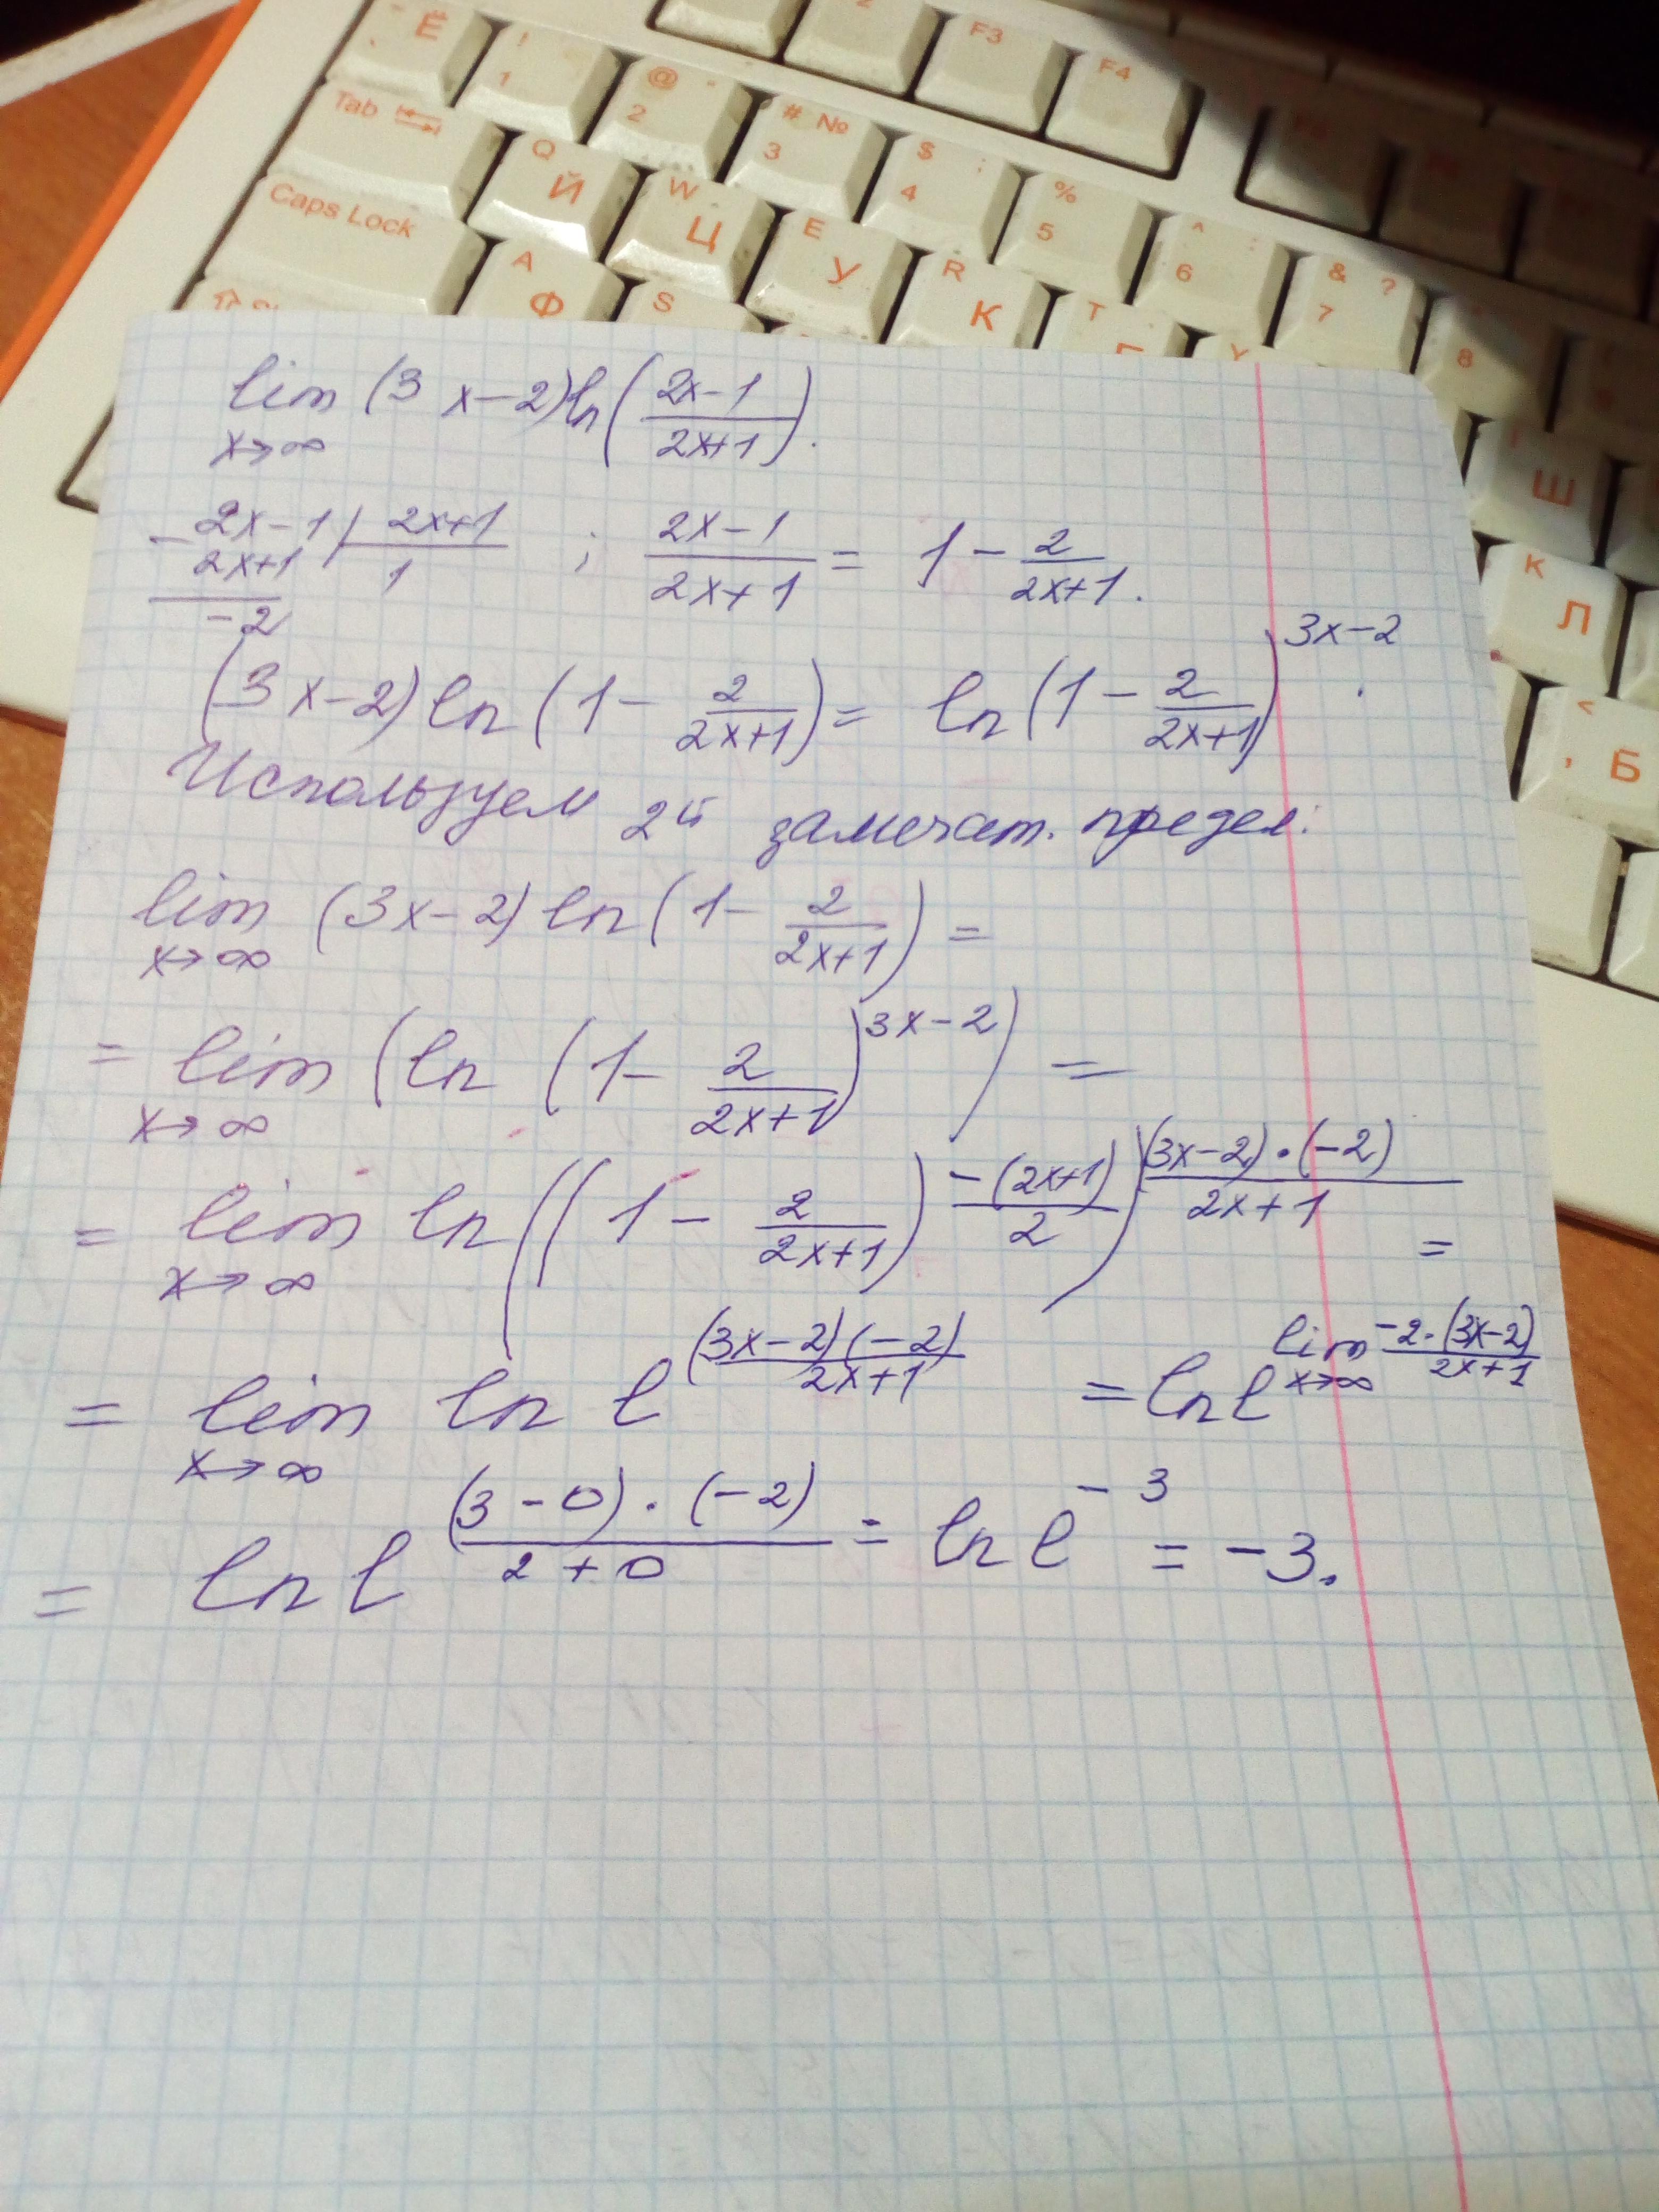 Ё ! 1 @ 2 # № 3 $ ; 4 % : 5 ^ : 6 & ? 7 8
F3 F4
Tab Q Й W Ц E У R К T Y
Caps Lock A Ф S
Ш
К Л
< , Б
lim (3x-2)ln((2x-1)/(2x+1)).
x→∞
-2x-1 | 2x+1
2x+1 | 1
-2
; (2x-1)/(2x+1) = 1 - 2/(2x+1).
(3x-2)ln(1 - 2/(2x+1)) = ln(1 - 2/(2x+1))^(3x-2).
Используем 2й замечат. предел:
lim (3x-2)ln(1 - 2/(2x+1)) =
x→∞
= lim (ln(1 - 2/(2x+1))^(3x-2)) =
x→∞
= lim ln((1 - 2/(2x+1))^(-(2x+1)/2))^((3x-2)·(-2)/(2x+1)) =
x→∞
= lim ln e^((3x-2)(-2)/(2x+1)) = ln e^(lim x→∞ -2·(3x-2)/(2x+1))
x→∞
= ln e^((3-0)·(-2)/(2+0)) = ln e^(-3) = -3.